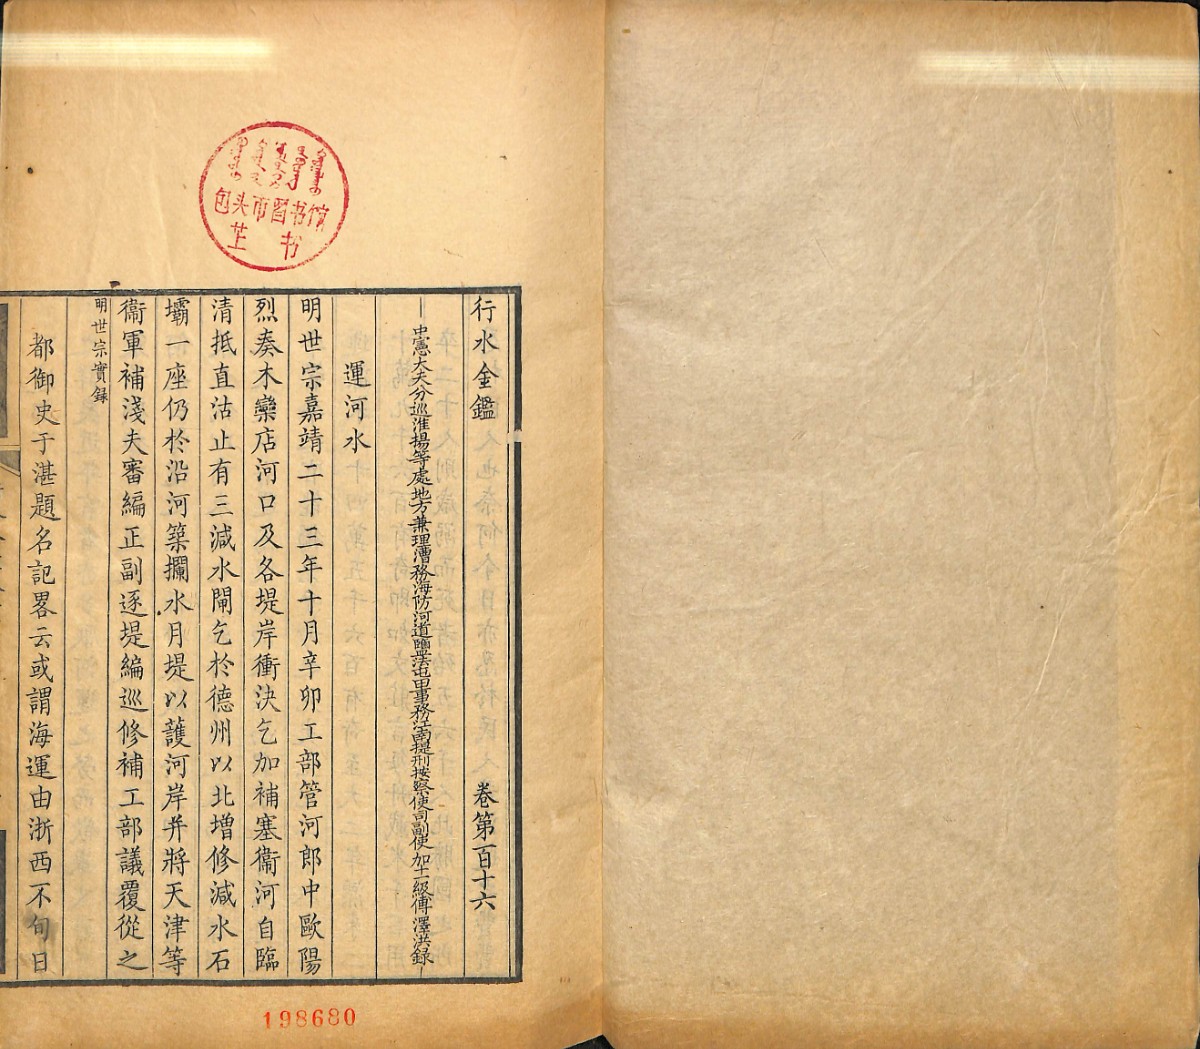 行水金鑑 卷第百十六
中憲大夫分巡淮揚等處地方兼理漕務海防河道鹽法屯田事務江南提刑按察使司副使加十一級傅澤洪錄
運河水
明世宗嘉靖二十三年十月辛卯工部管河郎中歐陽
烈奏木欒店河口及各堤岸衝決乞加補塞衞河自臨
清抵直沽止有三減水閘乞於德州以北增修減水石
壩一座仍於沿河築攔水月堤以護河岸并將天津等
衞軍補淺夫審編正副逐堤編巡修補工部議覆從之
明世宗實錄
都御史于湛題名記畧云或謂海運由浙西不旬日
包头市图书馆
书
198680